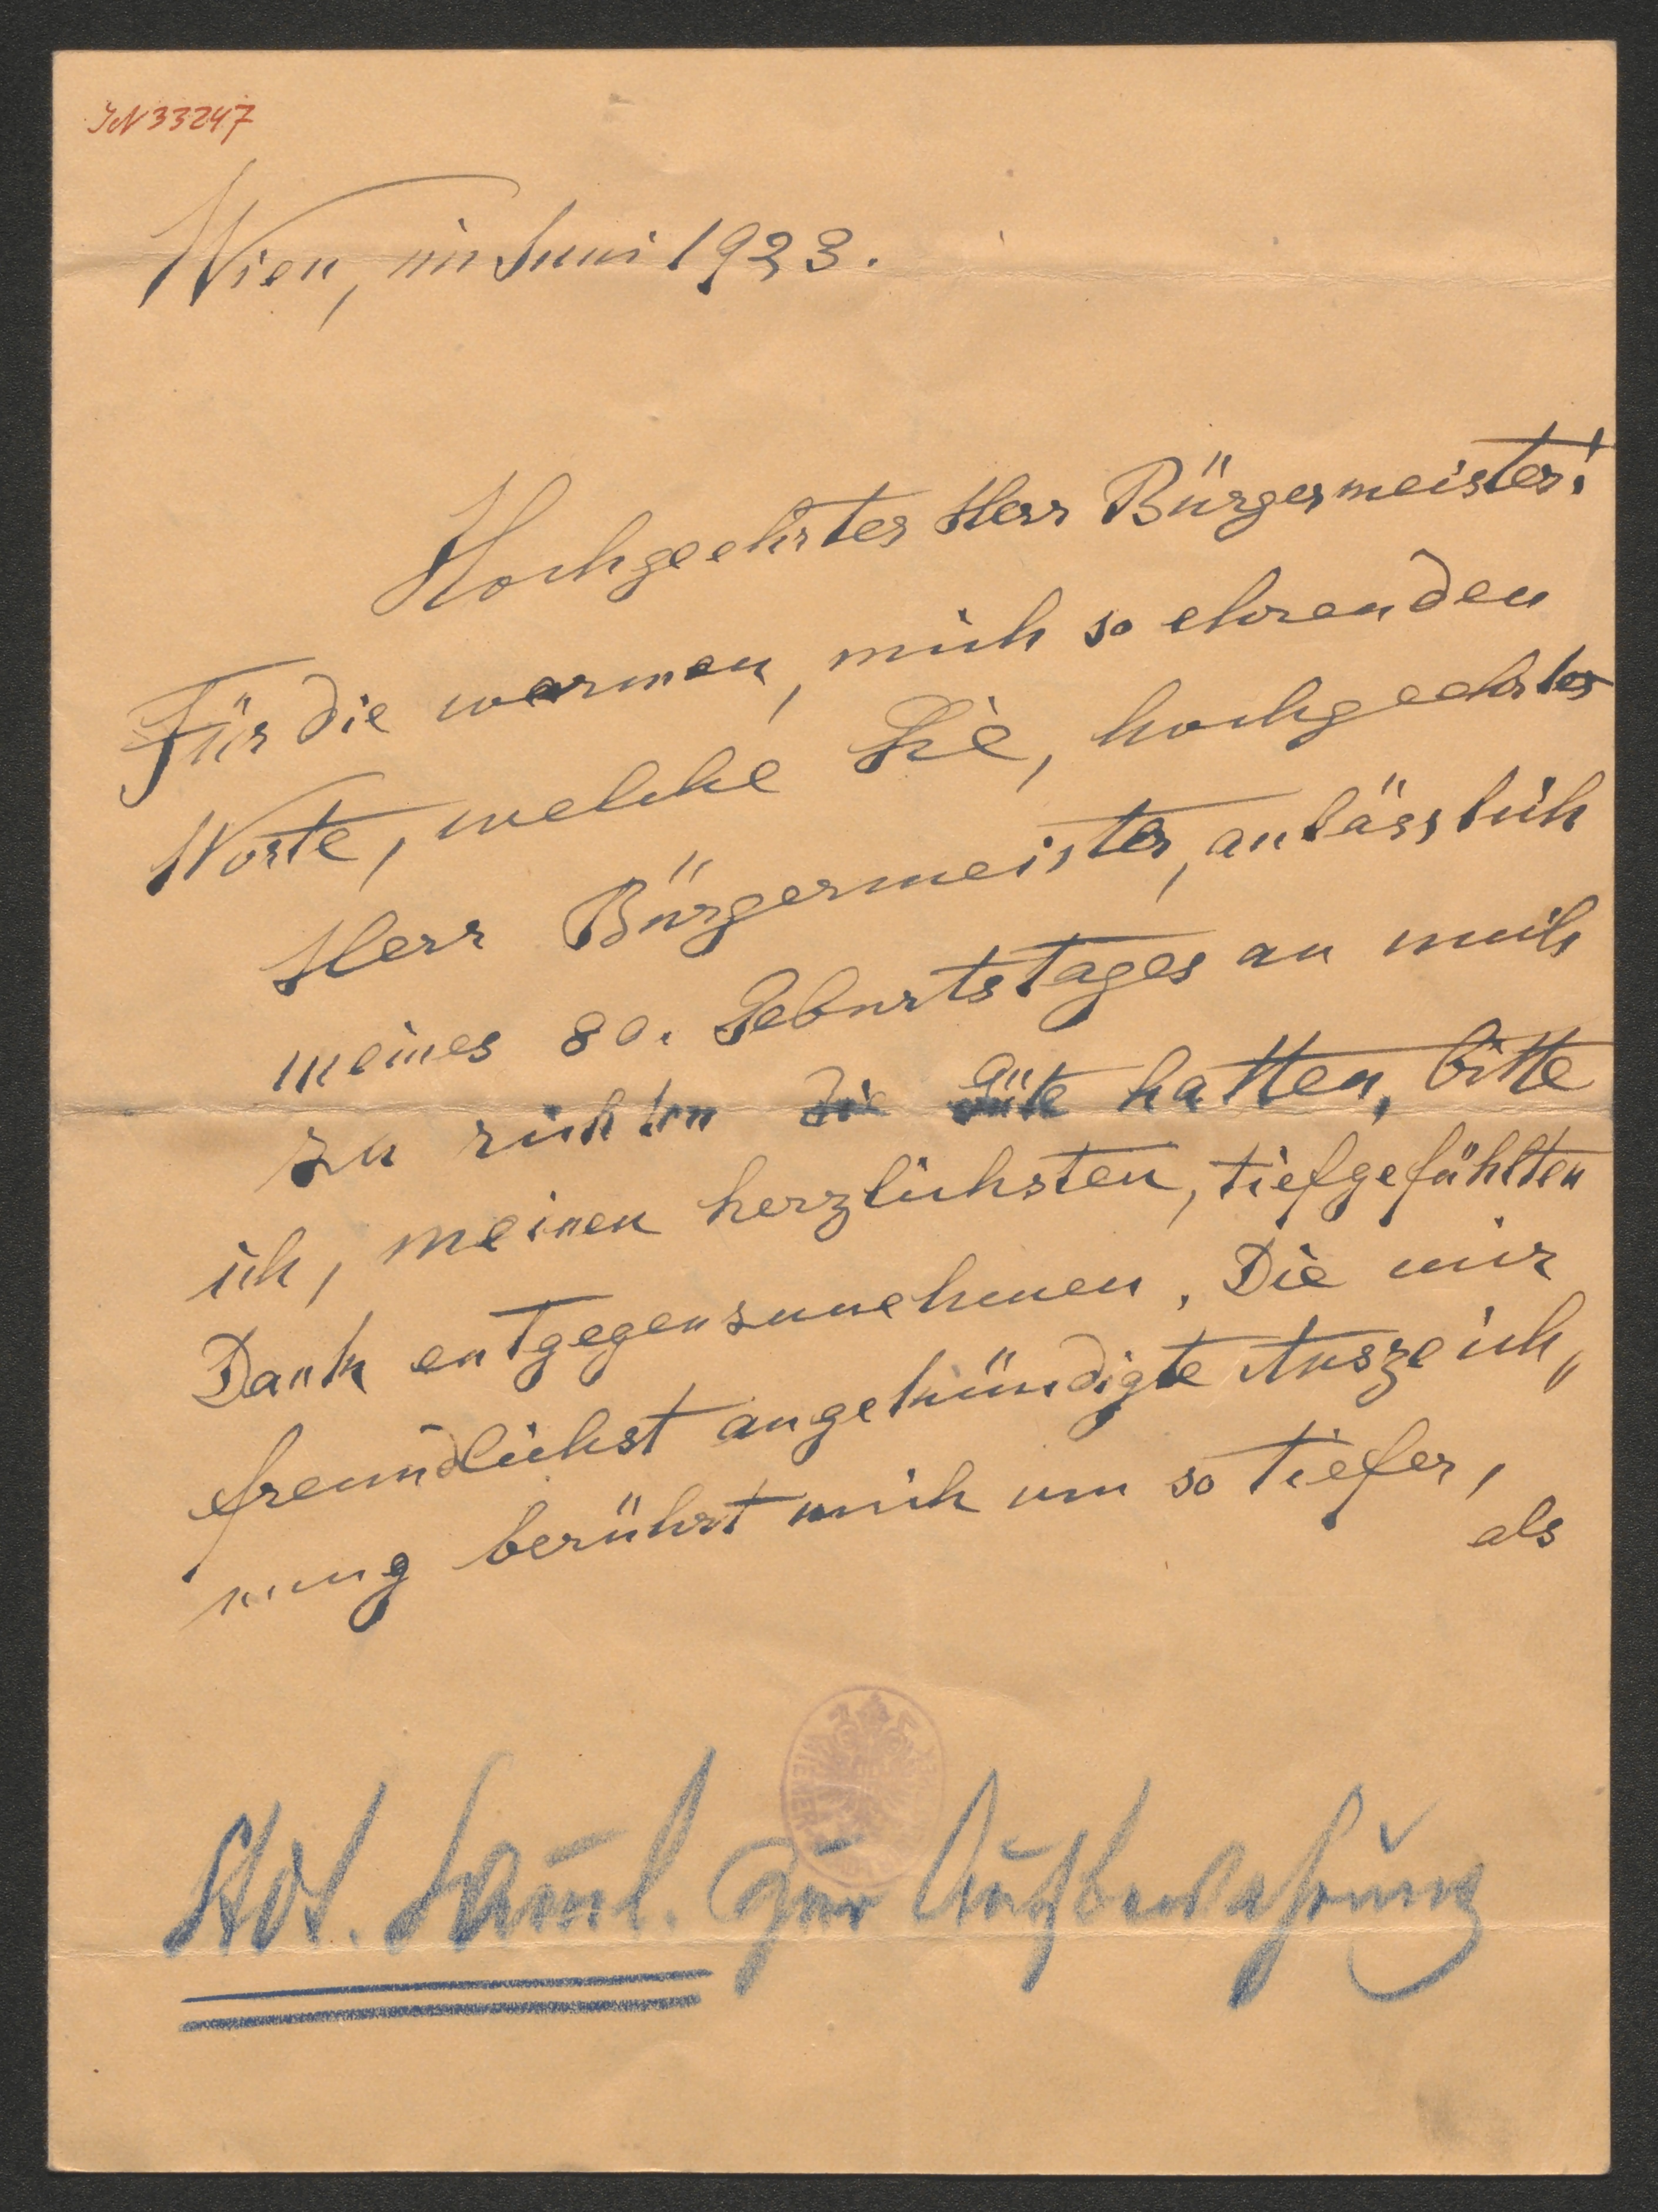 IN 33247
Wien, im Juni 1923.
Hochgeehrter Herr Bürgermeister!
Für die warmen, mich so ehrenden
Worte, welche Sie, hochgeehrter
Herr Bürgermeister, anlässlich
meines 80. Geburtstages an mich
zu richten die Güte hatten, bitte
ich, meinen herzlichsten, tiefgefühlten
Dank entgegenzunehmen. Die mir
freundlichst angekündigte Auszeich„
nung berührt mich um so tiefer,
als
WIENER
Städt. Samml. zur Aufbewahrung